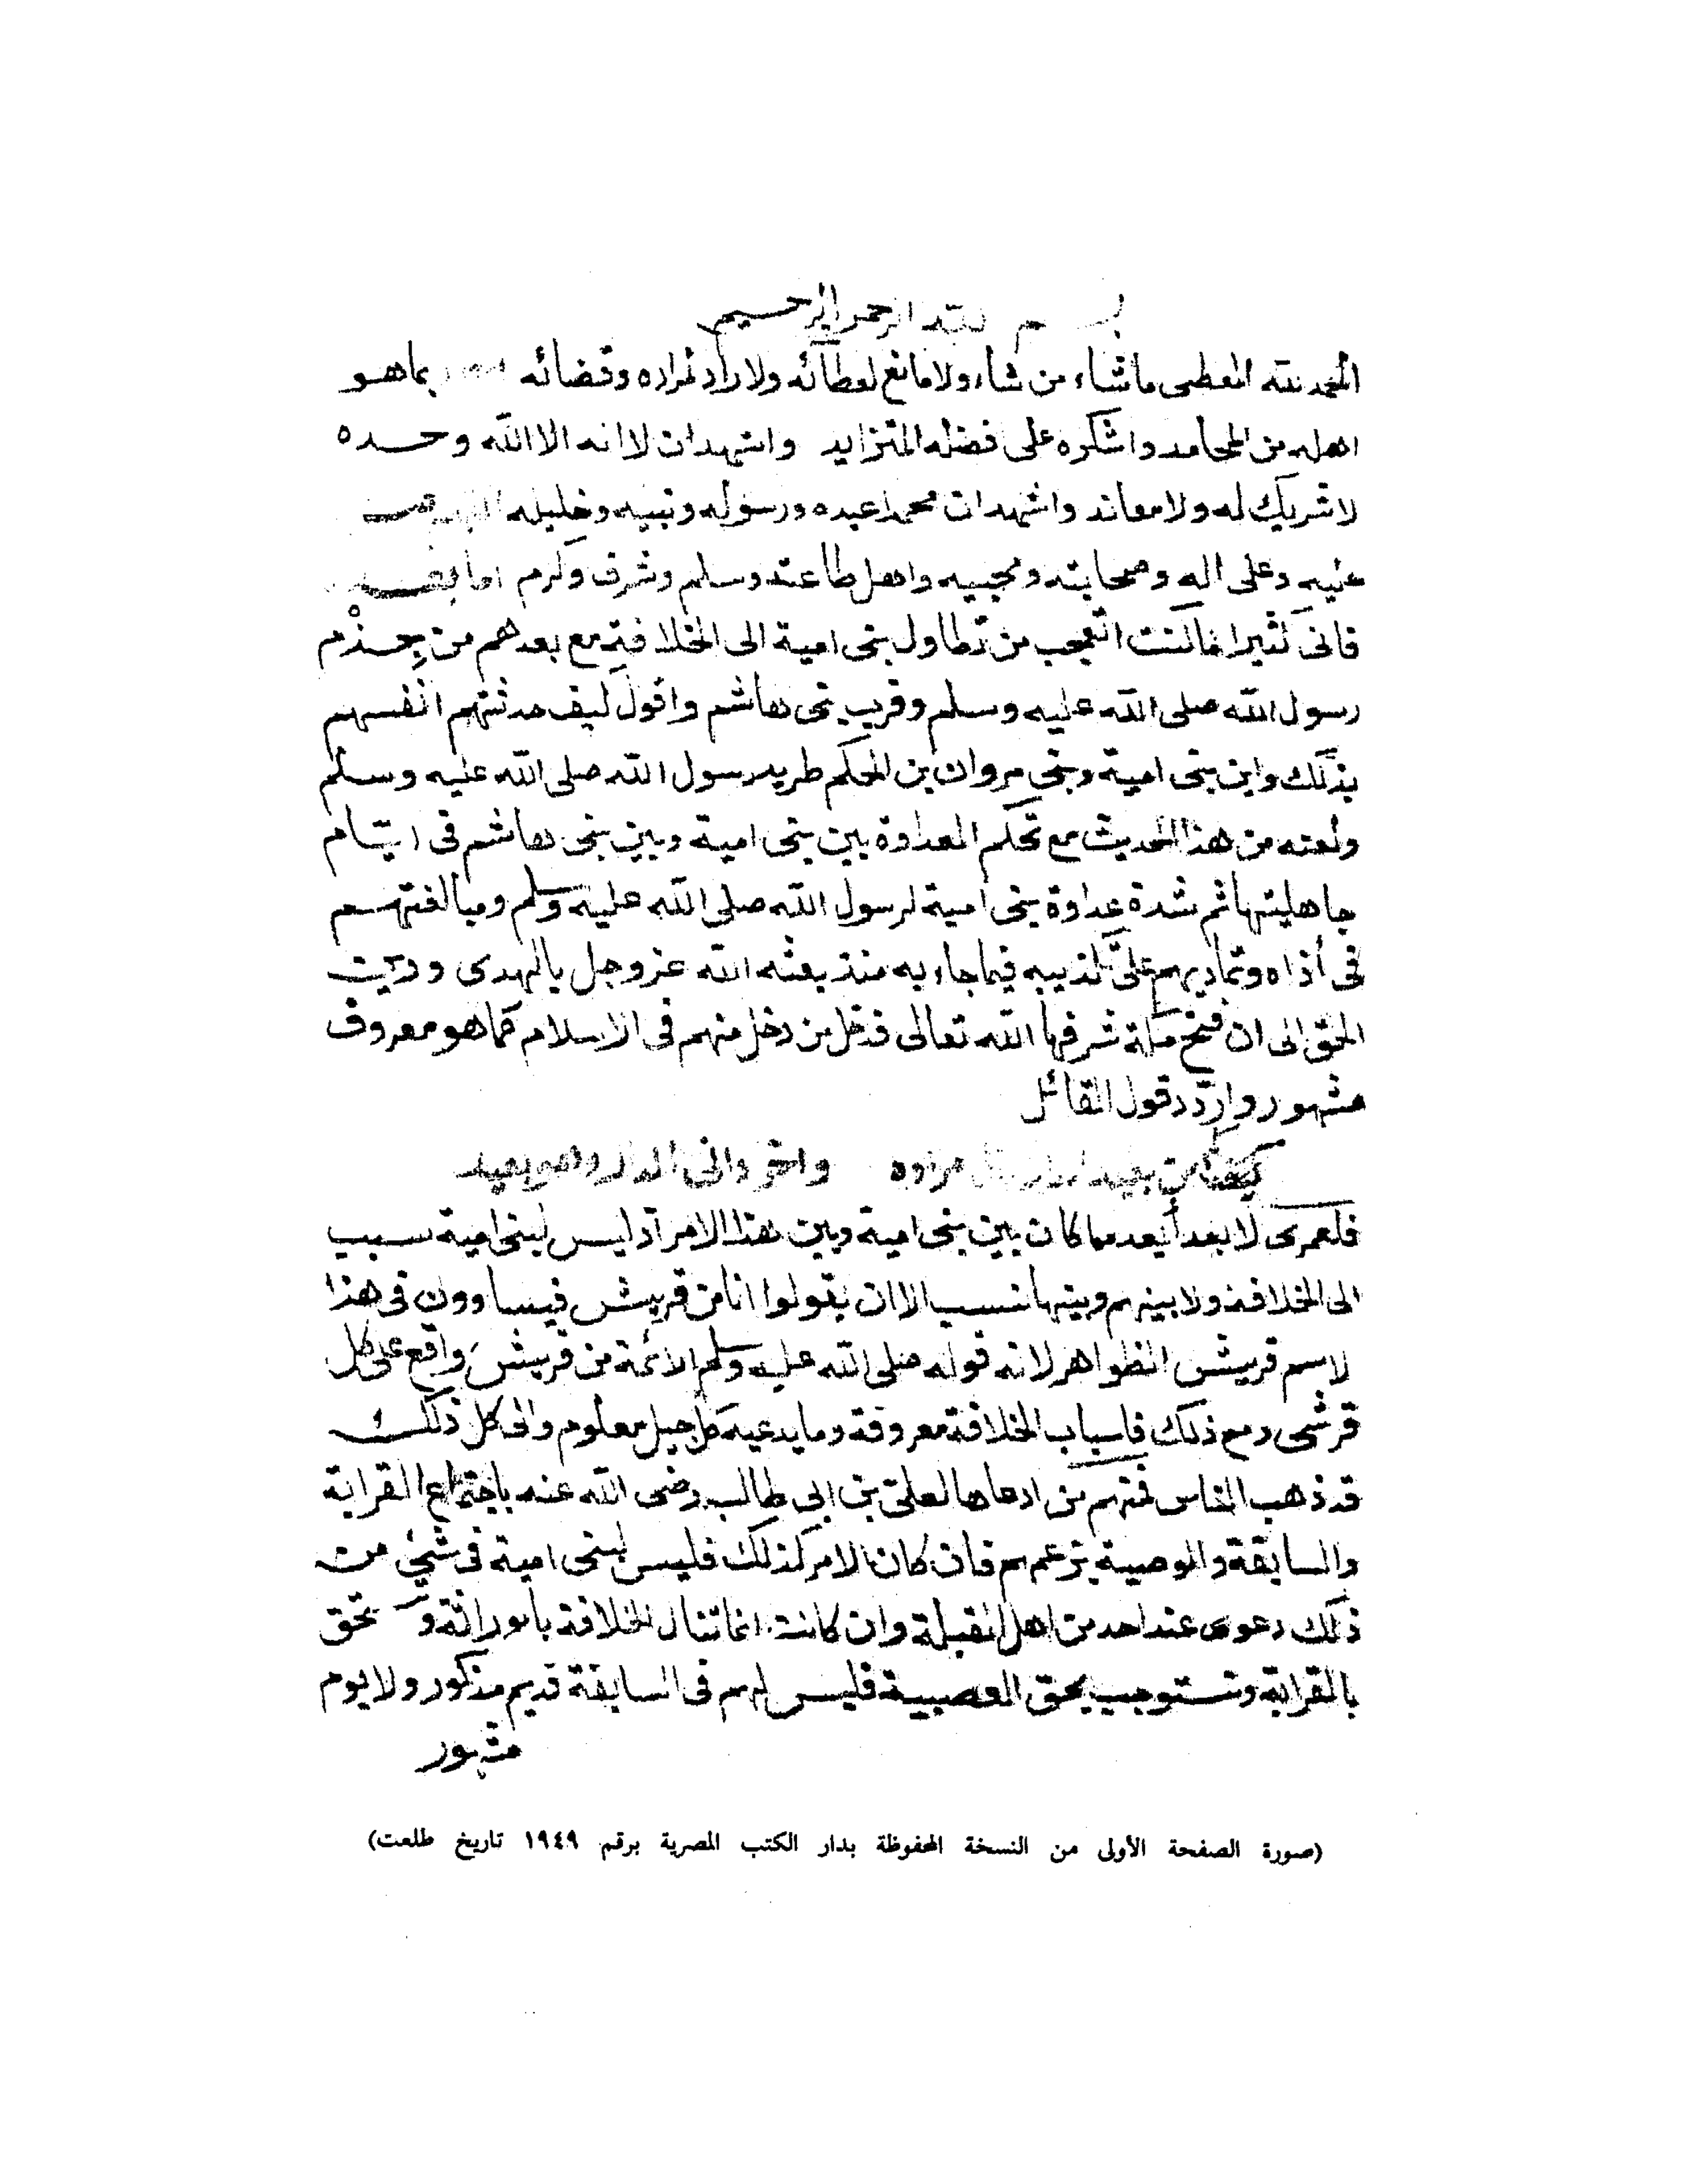 بسم الله الرحمن الرحيم
الحمد لله المعطى ماشاء من شاء ولا مانع لعطائه ولا راد لمراده وقضائه بما هو
اهله من المحامد واشكره على فضله المتزايد واشهد ان لا اله الا الله وحده
لا شريك له ولا معاند واشهد ان محمدا عبده ورسوله ونبيه وخليله اللهم صل
عليه وعلى اله وصحابته ومحبيه واهل طاعته وسلم وشرف وكرم اما بعد
فانى كثيرا ما كنت اتعجب من تطاول بنى امية الى الخلافة مع بعدهم من جِذْم
رسول الله صلى الله عليه وسلم وقرب بنى هاشم واقول كيف حدثتهم انفسهم
بذلك واين بنى امية وبنى مروان بن الحكم طريد رسول الله صلى الله عليه وسلم
ولعنه من هذا الحديث مع تحكم العداوة بين بنى امية وبين بنى هاشم فى ايام
جاهليتها ثم شدة عداوة بنى امية لرسول الله صلى الله عليه وسلم ومبالغتهم
فى أذاه وتماديهم على تكذيبه فيما جاء به منذ بعثه الله عز وجل بالهدى ودين
الحق الى ان فتح مكة شرفها الله تعالى فدخل من دخل منهم فى الاسلام كما هو معروف
مشهور واردد قول القائل
كم من بعيد الدار نال مراده واخر دانى الدار وهو بعيد
فلعمرى لا بعد أبعد مما كان بين بنى امية وبين هذا الامر اذ ليس لبنى امية سبب
الى الخلافة ولا بينهم وبينها نسب الا ان يقولوا انا من قريش فيساوون فى هذا
لاسم قريش الظواهر لانه قوله صلى الله عليه وسلم الائمة من قريش واقع على كل
قرشى ومع ذلك فاسباب الخلافة معروفة وما يدعيه كل جيل معلوم والى كل ذلك
قد ذهب الناس فمنهم من ادعاها لعلى بن ابى طالب رضى الله عنه باجتماع القرابة
والسابقة والوصية بزعمهم فان كان الامر كذلك فليس لبنى امية فى شئ من
ذلك دعوى عند احد من اهل القبلة وان كانت انما تنال الخلافة بالوراثة و تحق
بالقرابة وتستوجب بحق العصبية فليس لهم فى السابقة قديم مذكور ولا يوم
مشهور
(صورة الصفحة الأولى من النسخة المحفوظة بدار الكتب المصرية برقم ١٩٤٩ تاريخ طلعت)